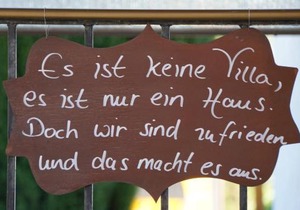 Es ist keine Villa,
es ist nur ein Haus.
Doch wir sind zufrieden
und das macht es aus.